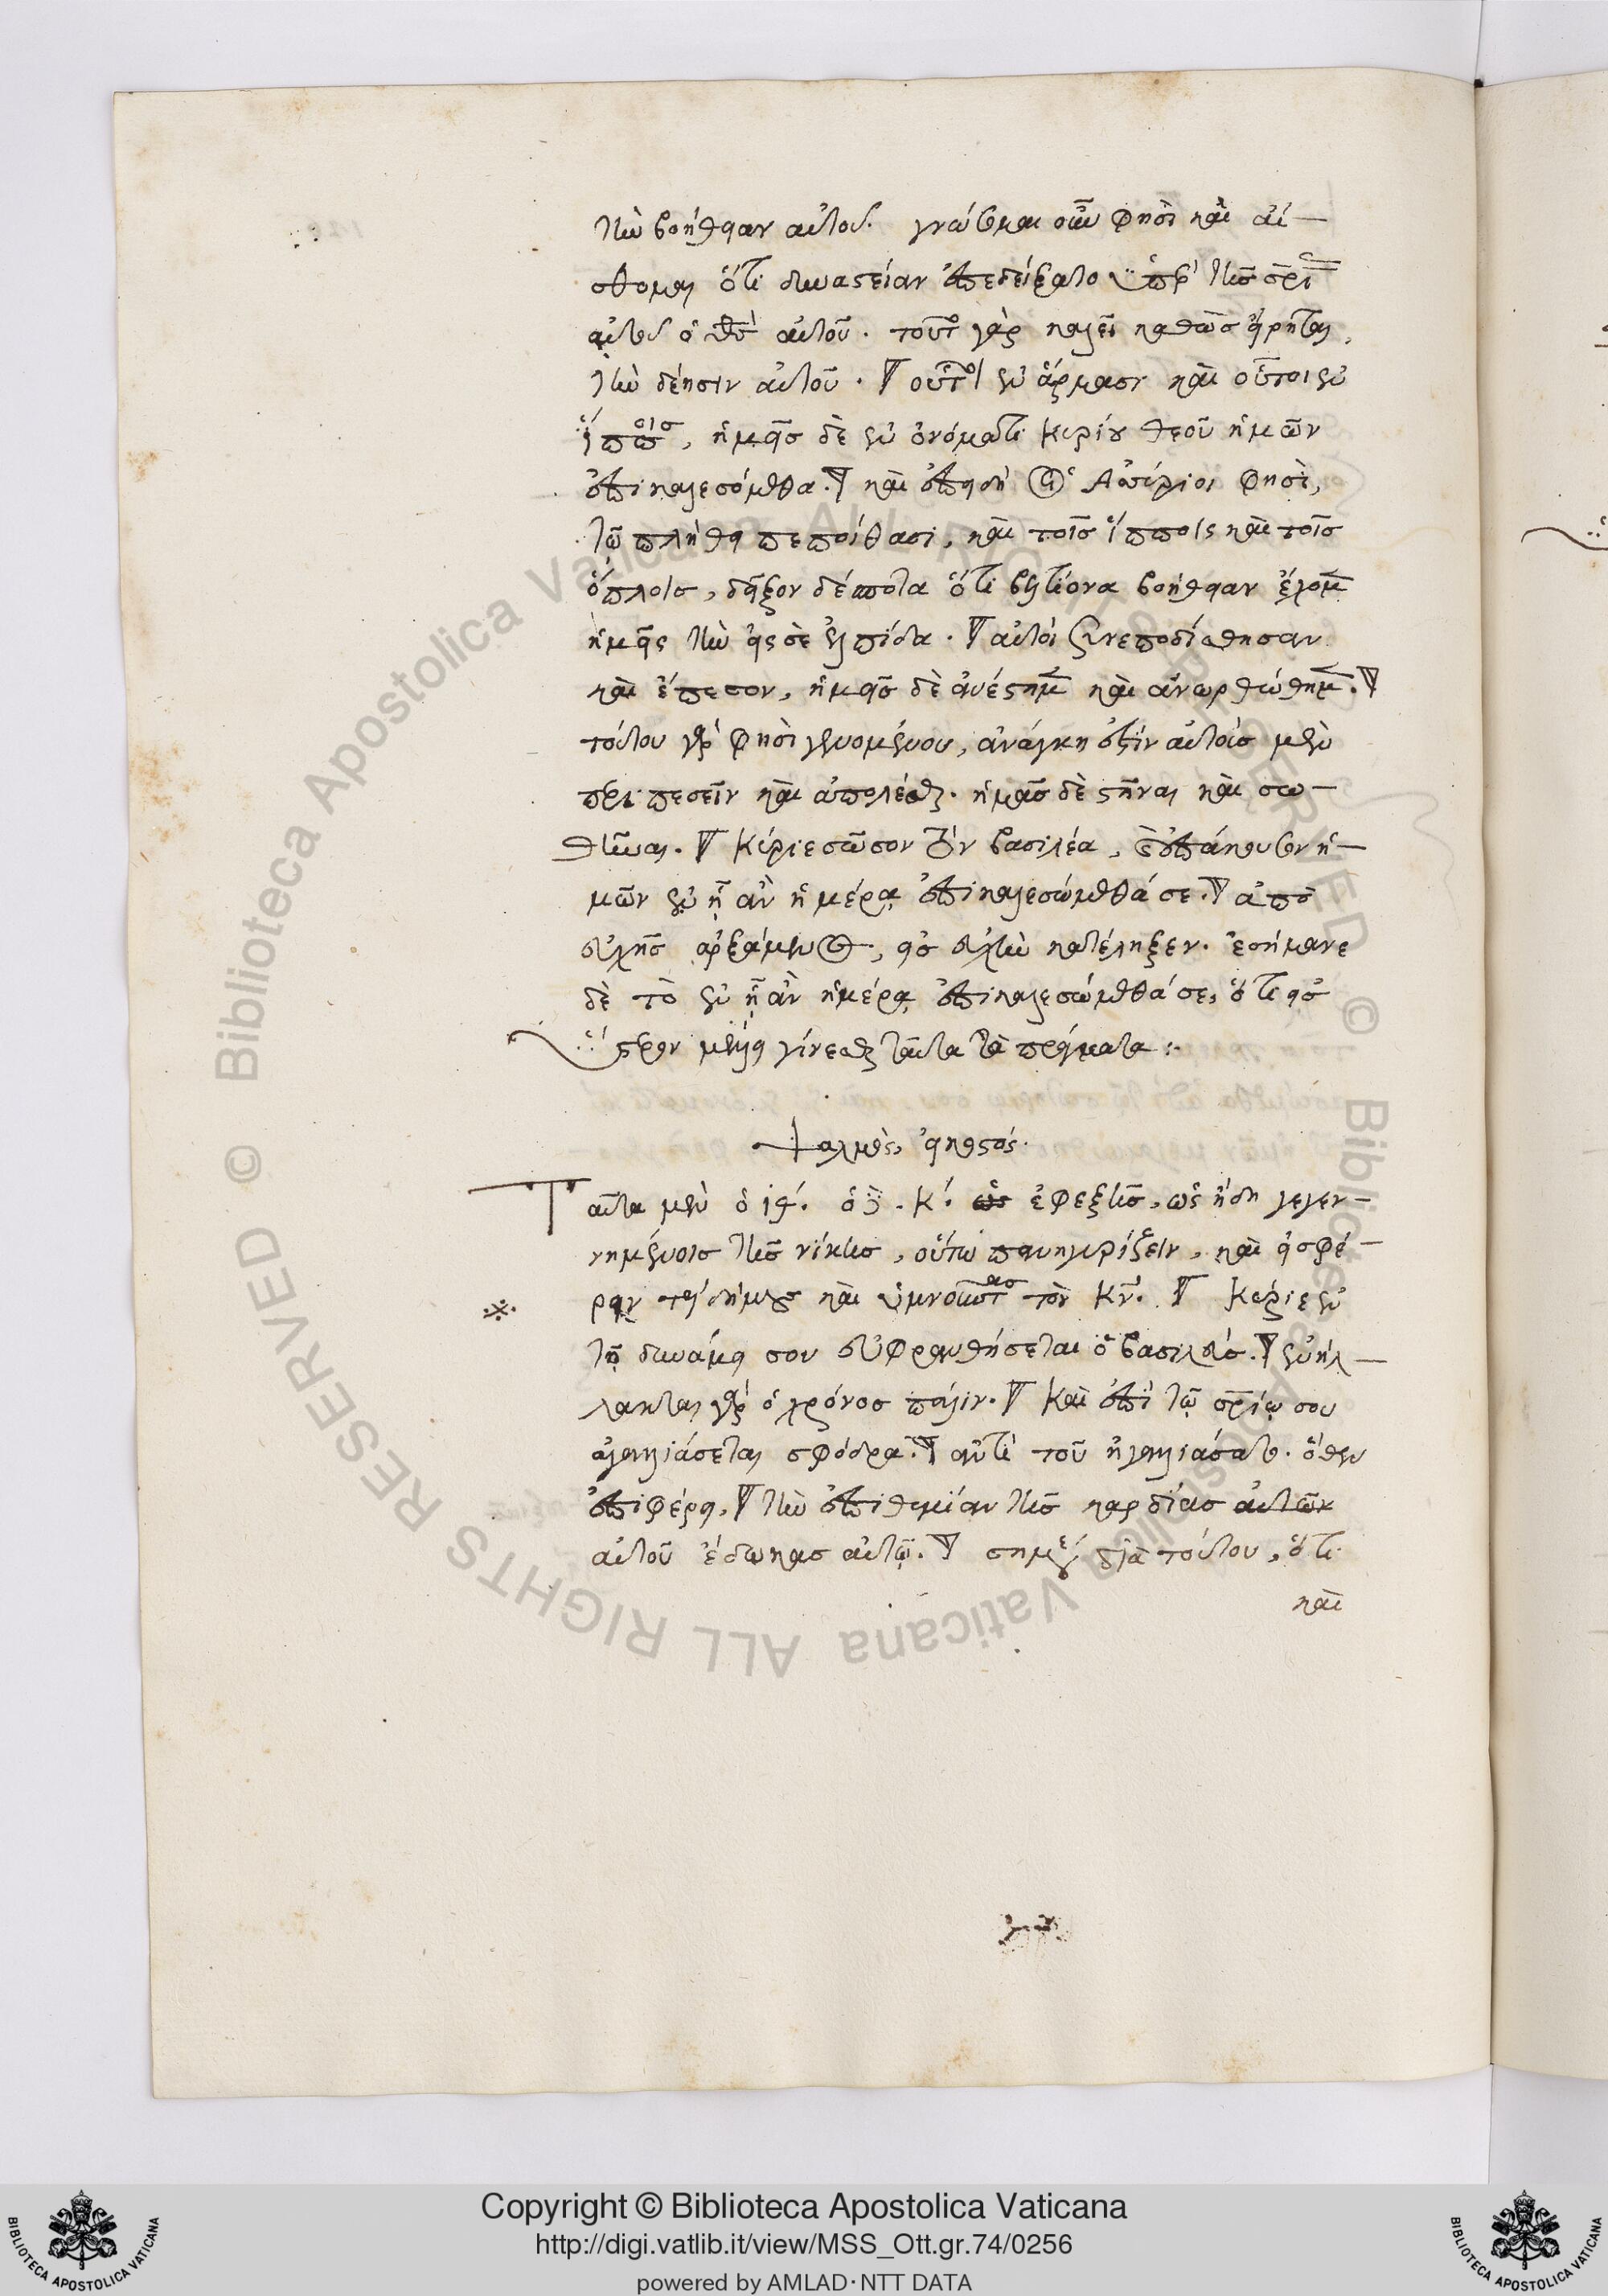 τὴν βοήθειαν αὐτοῦ. γνώσομαι οὖν φησὶ καὶ αἰ-
σθομαι ὅτι δυναστείαν ἀπεδείξατο ὑπὲρ τῆς σρι
αὐτοῦ ὁ θς αὐτοῦ. τοῦτο γὰρ καλεῖ καθὼς εἴρηται,
τὴν δέησιν αὐτοῦ. οὗτοι ἐν ἅρμασι καὶ οὗτοι ἐν
ἵπποις, ἡμεῖς δὲ ἐν ὀνόματι Κυρίου θεοῦ ἡμῶν
ἐπικαλεσόμεθα. καὶ ἐπειδὴ οἱ Ἀσσύριοι φησὶ,
τῷ πλήθει πεποίθασι, καὶ τοῖς ἵπποις καὶ τοῖς
ὅπλοις, δεῖξον δέσποτα ὅτι βελτίονα βοήθειαν ἔχομεν
ἡμεῖς τὴν εἰς σὲ ἐλπίδα. αὐτοὶ συνεποδίσθησαν
καὶ ἔπεσον, ἡμεῖς δὲ ἀνέστημεν καὶ ἀνωρθώθημεν.
τούτου γὰρ φησὶ γενομένου, ἀνάγκη ἐστὶν αὐτοὺς μὲν
περιπεσεῖν καὶ ἀπολέσθαι. ἡμᾶς δὲ στῆναι καὶ σω-
θῆναι. Κύριε σῶσον τὸν βασιλέα, καὶ ἐπάκουσον ἡ-
μῶν ἐν ᾗ ἂν ἡμέρᾳ ἐπικαλεσώμεθά σε. ἀπὸ
εὐχῆς ἀρξάμενος, εἰς εὐχὴν κατέληξεν. ἐσήμανε
δὲ τὸ ἐν ᾗ ἂν ἡμέρᾳ ἐπικαλεσώμεθά σε, ὅτι εἰς
ὕστερον μέλλει γίνεσθαι ταῦτα τὰ πράγματα:
ψαλμὸς, εἰκοστός.
Ταῦτα μὲν ὁ ιθ΄. ὁ δὲ. Κ΄. ἐφεξῆς, ὡς ἤδη γεγεν-
νημένοις τῆς νίκης, οὕτω πανηγυρίζειν, καὶ εἰσφέ-
ρειν δήμους καὶ ὑμνοῦντας τὸν Κν. Κύριε ἐν
τῇ δυνάμει σου εὐφρανθήσεται ὁ βασιλεύς. ἐνήλ-
λακται γὰρ ὁ χρόνος πάλιν. Καὶ ἐπὶ τῷ σρίῳ σου
ἀγαλλιάσεται σφόδρα. ἀντὶ τοῦ ἠγαλλιάσατο. ὅθεν
ἐπιφέρει, τὴν ἐπιθυμίαν τῆς καρδίας αὐτῶν
αὐτοῦ ἔδωκας αὐτῷ. σημαίνει διὰ τούτου, ὅτι
καὶ
© Biblioteca Apostolica Vaticana ALL RIGHTS RESERVED
Copyright © Biblioteca Apostolica Vaticana
http://digi.vatlib.it/view/MSS_Ott.gr.74/0256
powered by AMLAD·NTT DATA
BIBLIOTECA APOSTOLICA VATICANA
BIBLIOTECA APOSTOLICA VATICANA